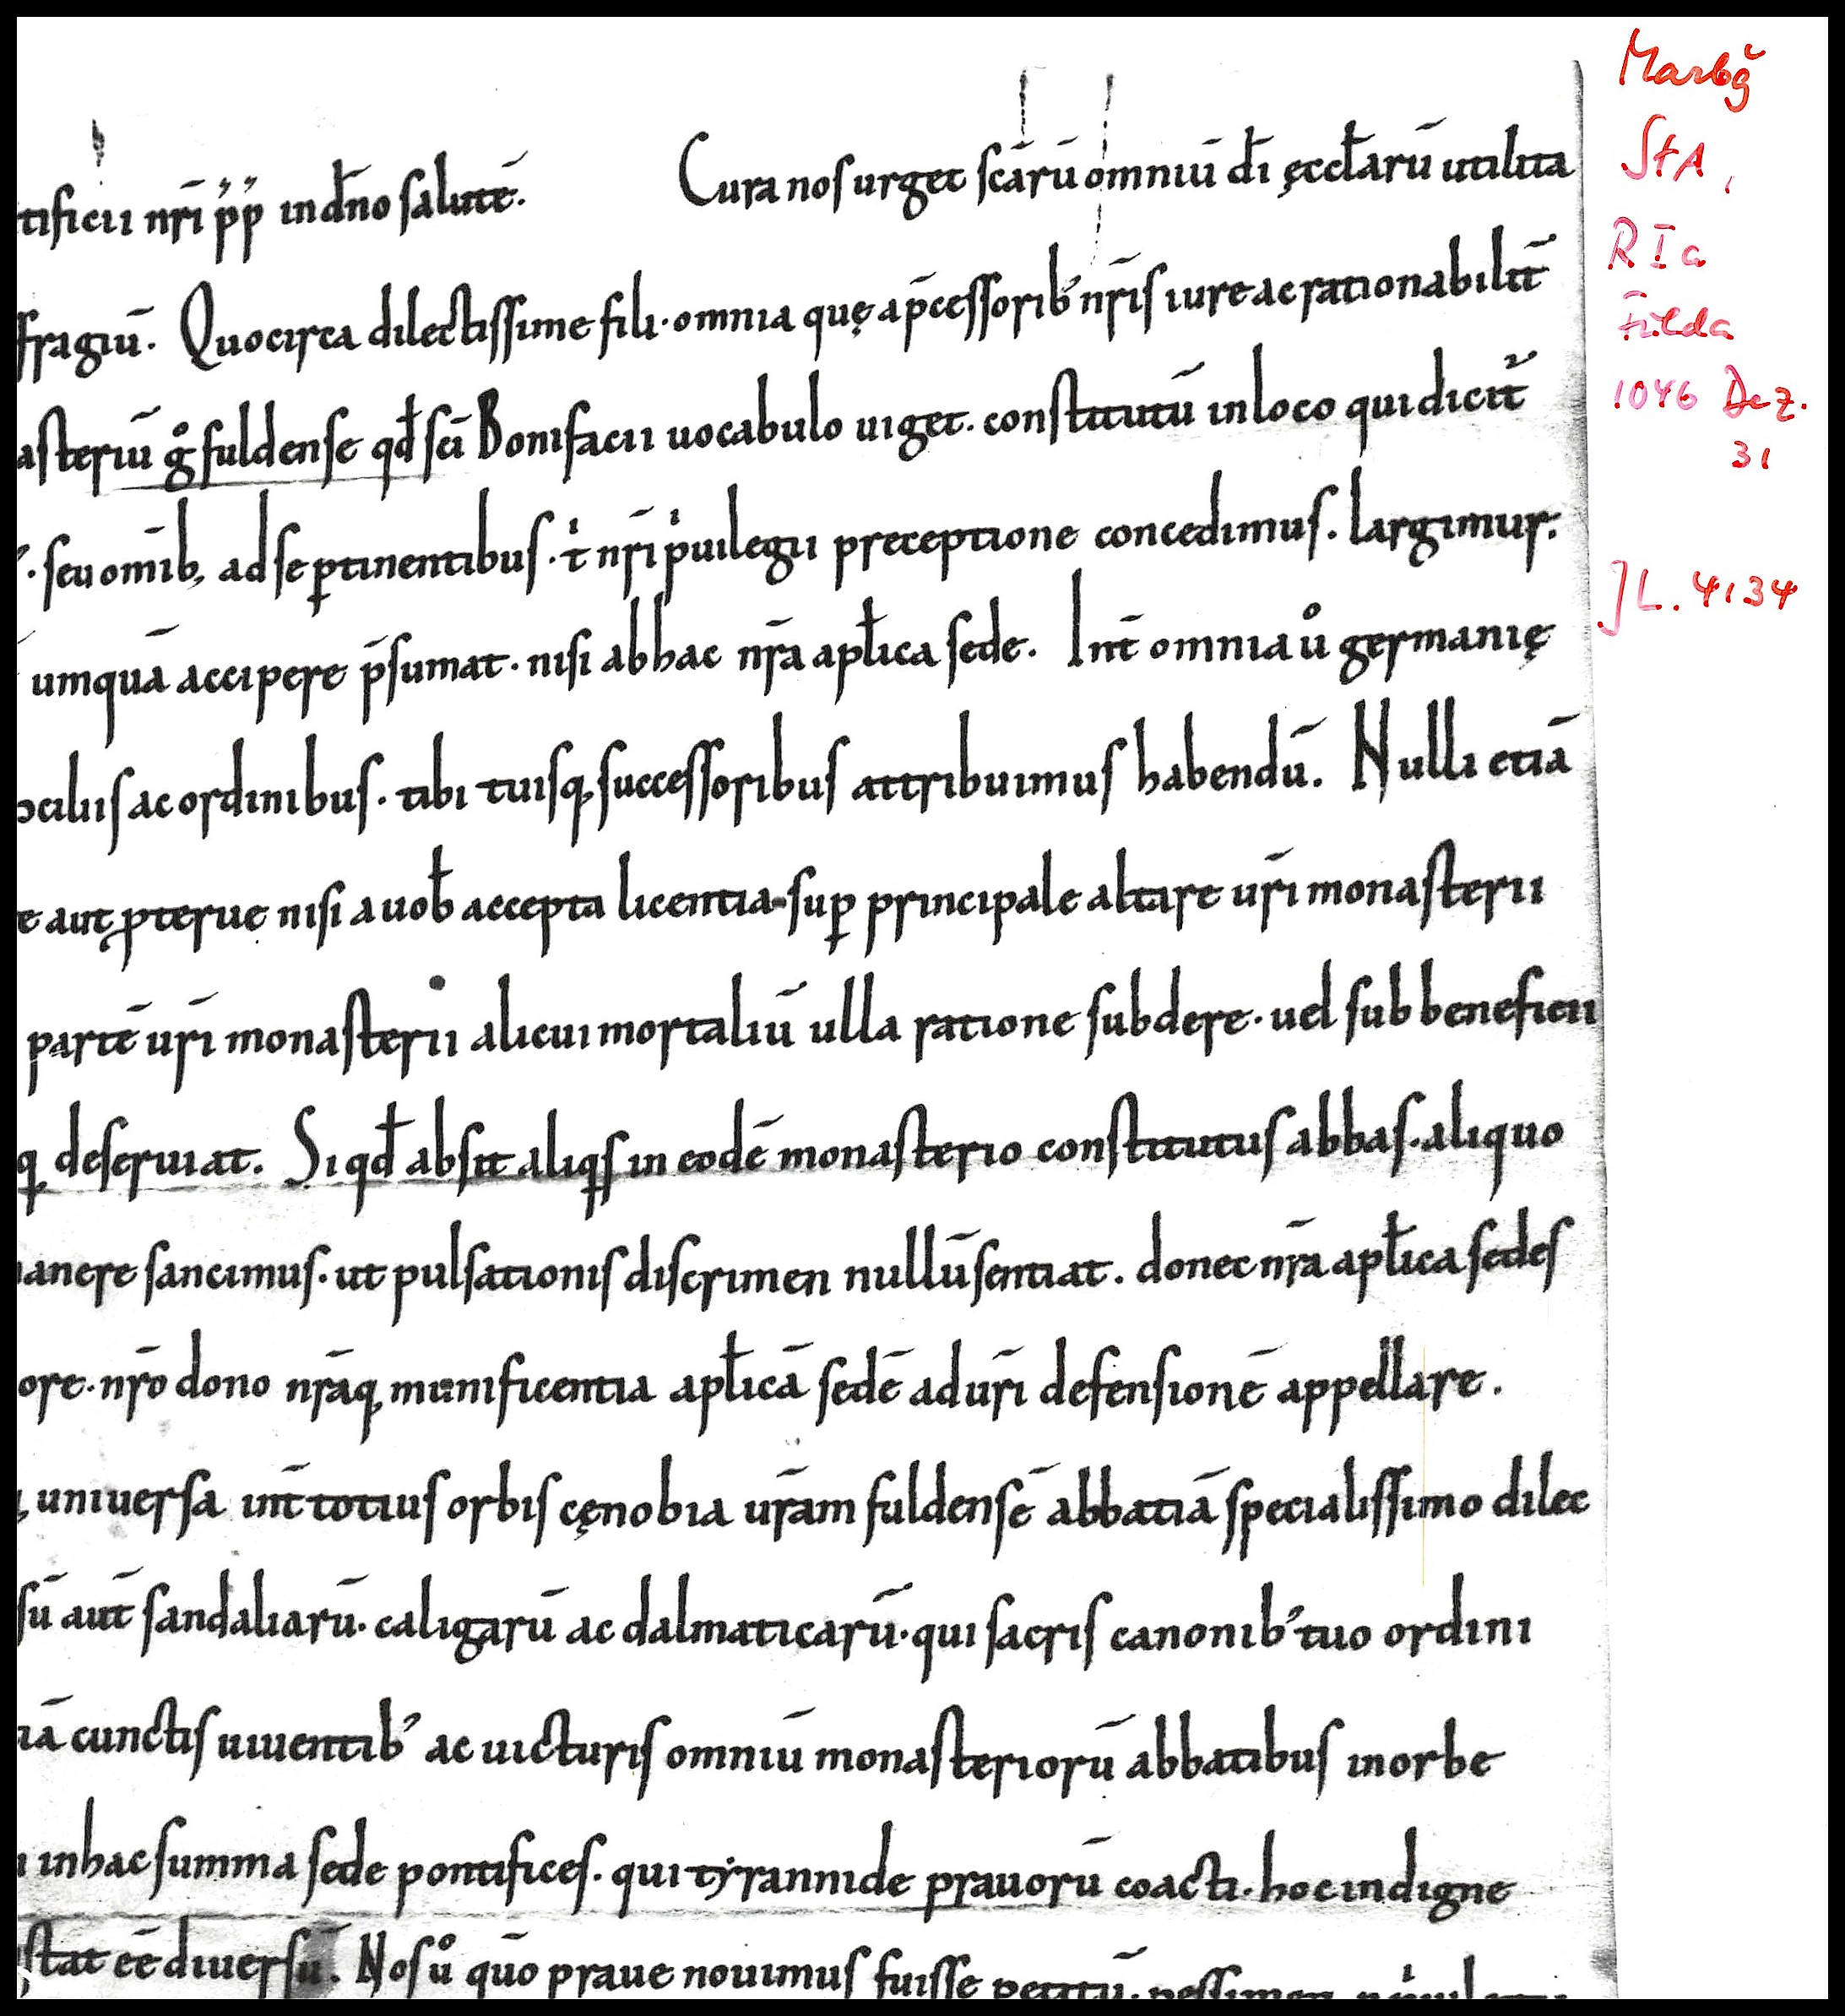 tificii nr̄i pp̄ in dn̄o salutē. Cura nos urget scārū omniū dī ęccłarū utilita
ffragiū. Quocirca dilectissime fili. omnia quę a p̄cessorib' nr̄is iure ac rationabilit̄
asteriū g° fuldense qđ scī Bonifacii uocabulo uiget. constitutū in loco qui dicit̄
. seu omīb; ad se ꝑtinentibus. t' nr̄i p'uilegii preceptione concedimus. largimur.
umquā accipere p̄sumat. nisi ab hac nr̄a apłica sede. Int̄ omnia u° germanię
ociliis ac ordinibus. tibi tuisq; successoribus attribuimus habendū. Nulli etiā
e aut ꝓterue nisi a uob̄ accepta licentia. suꝑ principale altare ur̄i monasterii
partē ur̄i monasterii alicui mortaliū ulla ratione subdere. uel sub beneficii
q; deseruiat. Si qđ absit aliqs in eodē monasterio constitutus abbas. aliquo
anere sancimus. ut pulsationis discrimen nullū sentiat. donec nr̄a apłica sedes
ore. nr̄o dono nr̄aq; munificentia apłicā sedē ad ur̄i defensionē appellare.
uniuersa int̄ totius orbis cęnobia ur̄am fuldensē abbatiā specialissimo dilec
sū aut̄ sandaliarū. caligarū ac dalmaticarū. qui sacris canonib' tuo ordini
iā cunctis uiuentib' ac uicturis omniū monasteriorū abbatibus in orbe
in hac summa sede pontifices. qui tyrannide prauorū coacti. hoc indigne
stat eē diuersū. Nos u° quō praue nouimus fuisse petitū.
Marbg̃
StA,
R I a
Fulda
1046 Dez.
31
JL. 4134